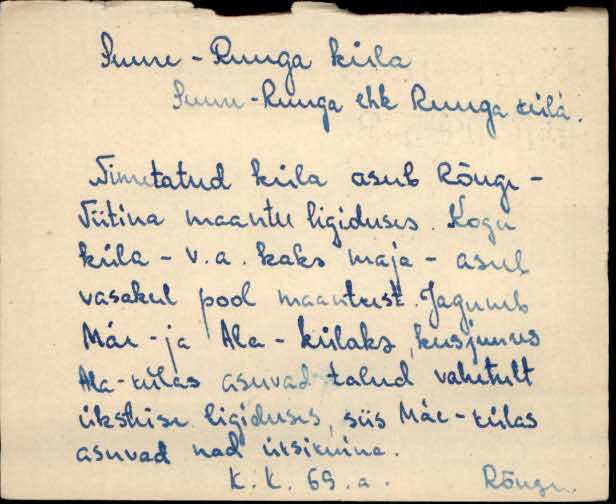 Suure-Ruuga küla
Suure-Ruuga ehk Ruuga külä.
Nimetatud küla asub Rõuge-
Viitina maantee ligiduses. Kogu
küla - v.a. kaks maja - asub
vasakul pool maanteest. Jaguneb
Mäe- ja Ala-külaks, kusjuures
Ala-külas asuvad talud vahetult
üksteise ligiduses, siis Mäe-külas
asuvad nad üksikuina.
K.K. 69.a. Rõuge.